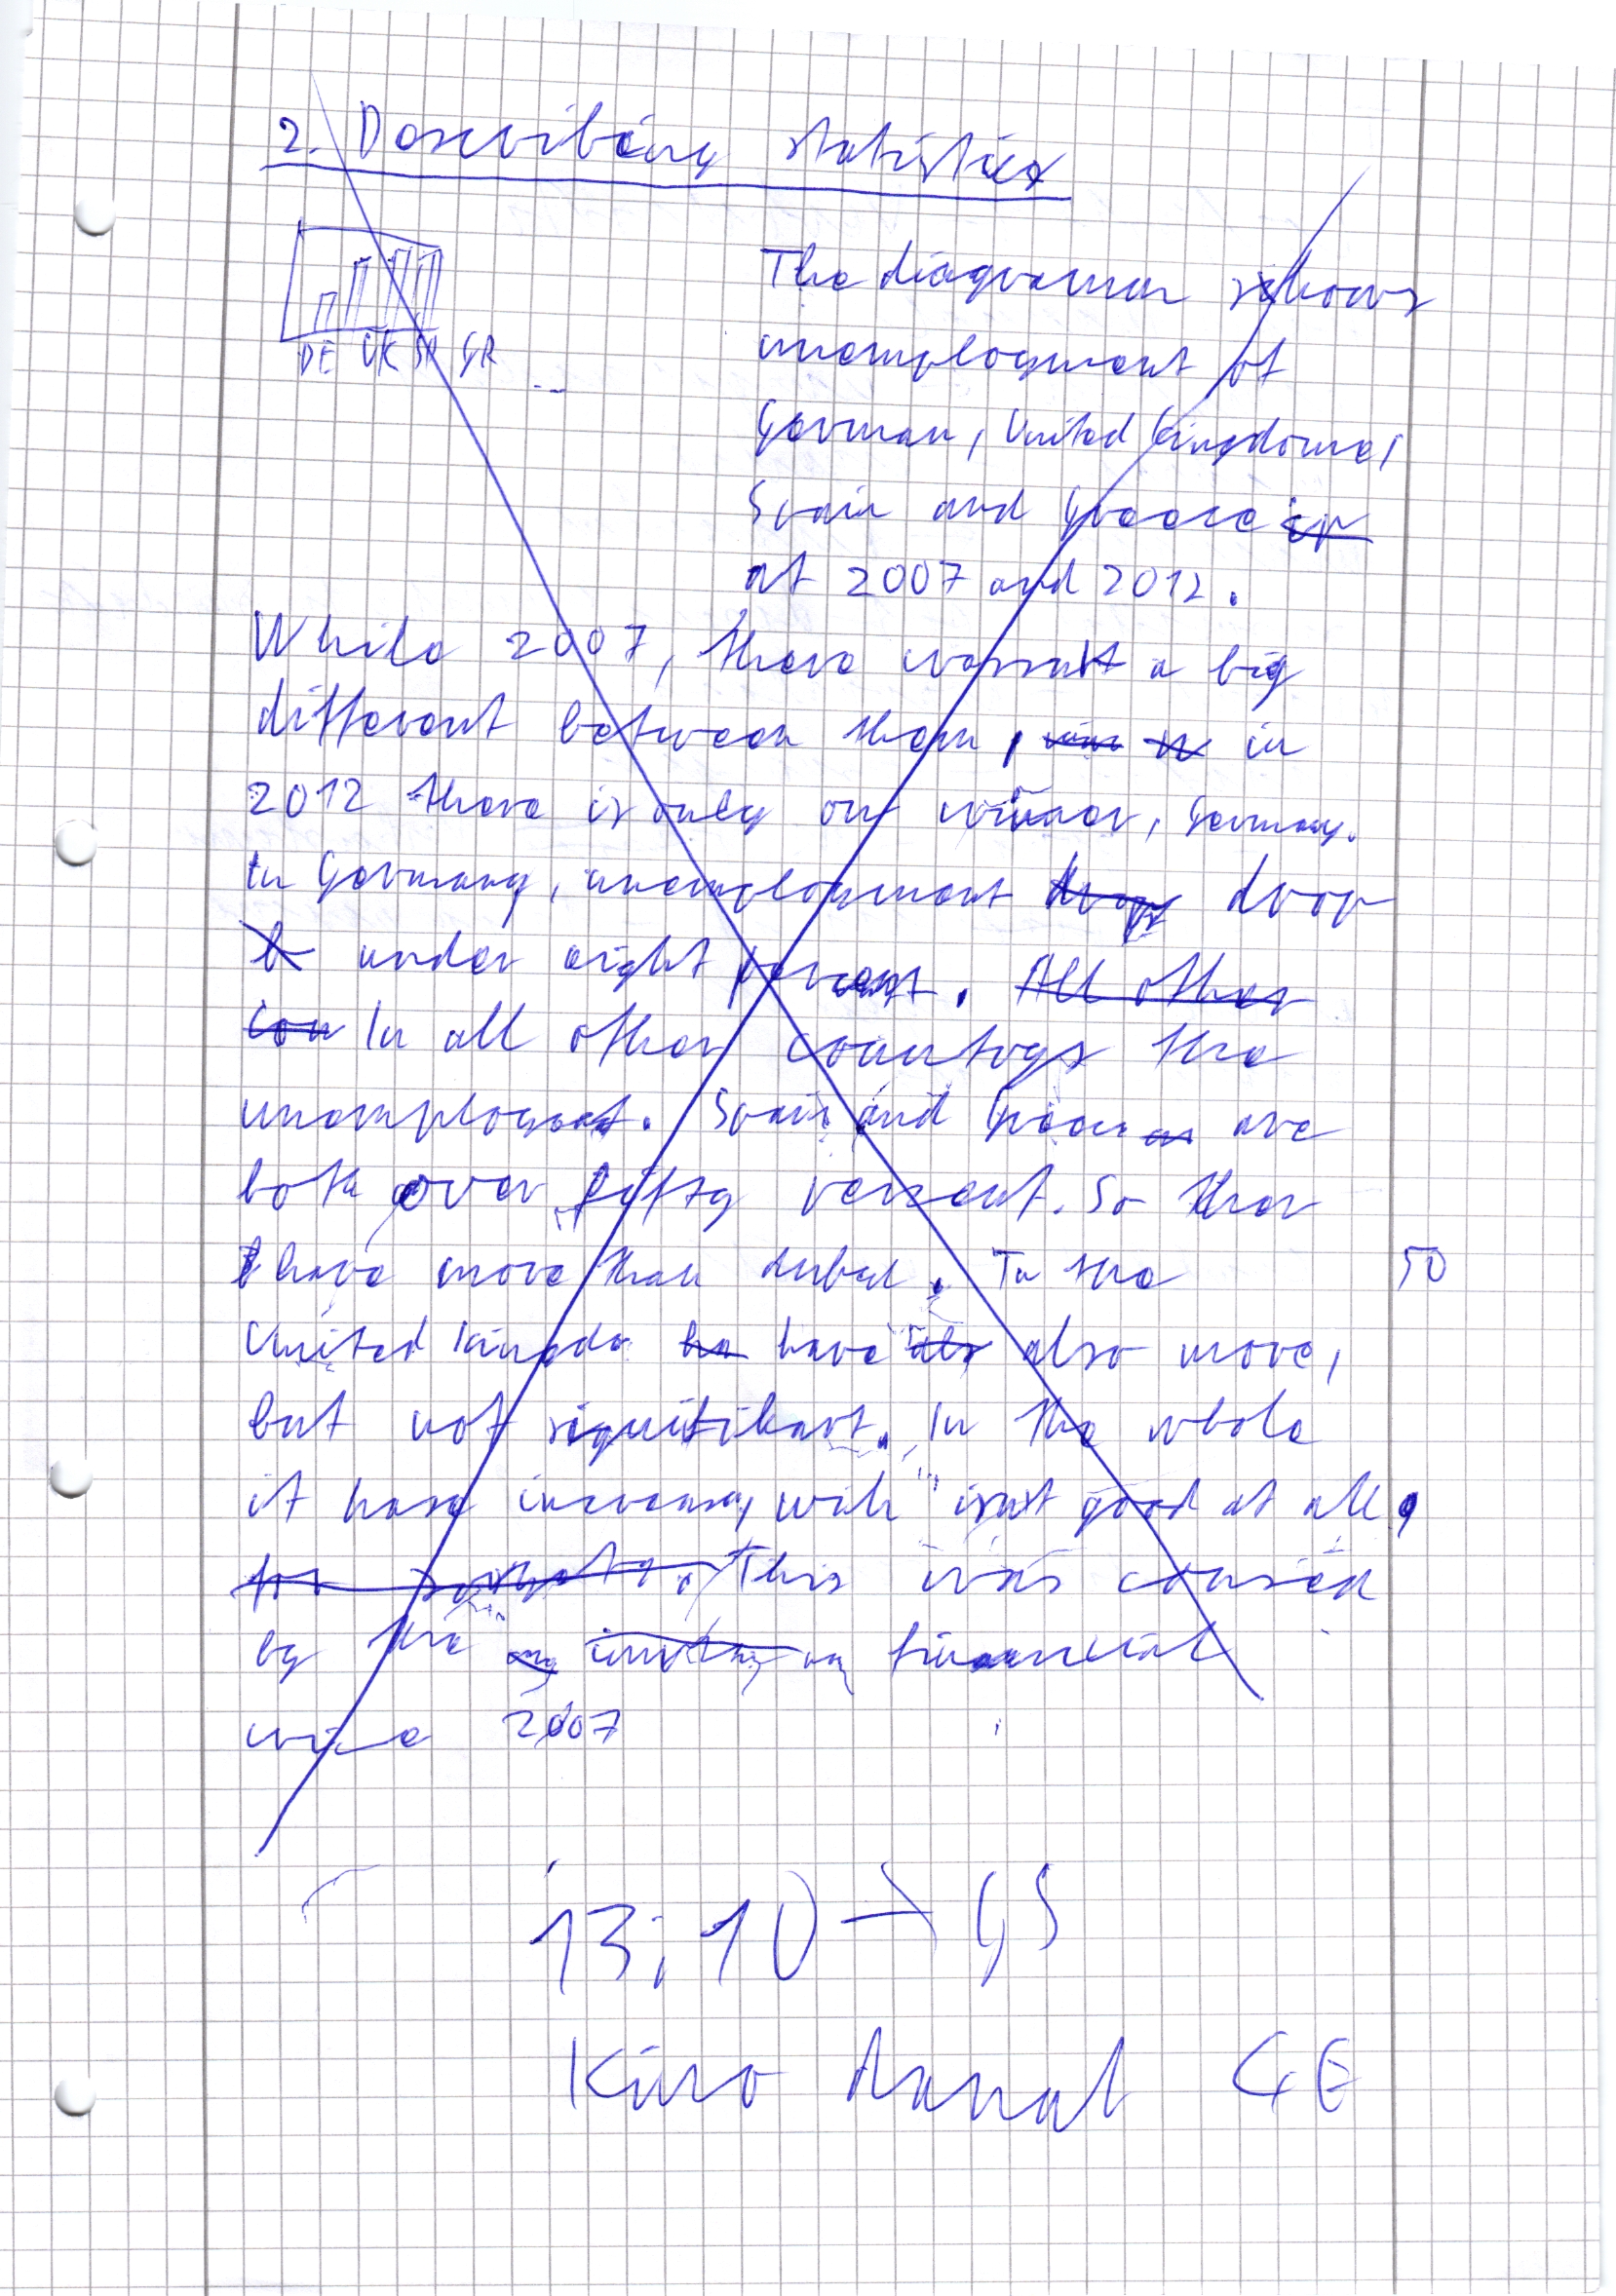 2. Describing statistics
DE UK SP GR
The diagramm shows
unemployment of
German, United Kingdome,
Spain and Greece
at 2007 and 2012.
While 2007, there wasn't a big
different between them, in
2012 there is only one winner, Germany.
In Germany, unemployment drop
under eight percent. All other
Cou In all other countrys the
unemployment. Spain and Greece are
both over fifty percent. So ther
have more than dubel. In the 50
United Kingdo have also more,
but not signifikant. In the whole
it have increase, wich isn't good at all,
This was caused
by the financial
2007
13:10 → GS
Kino 4E